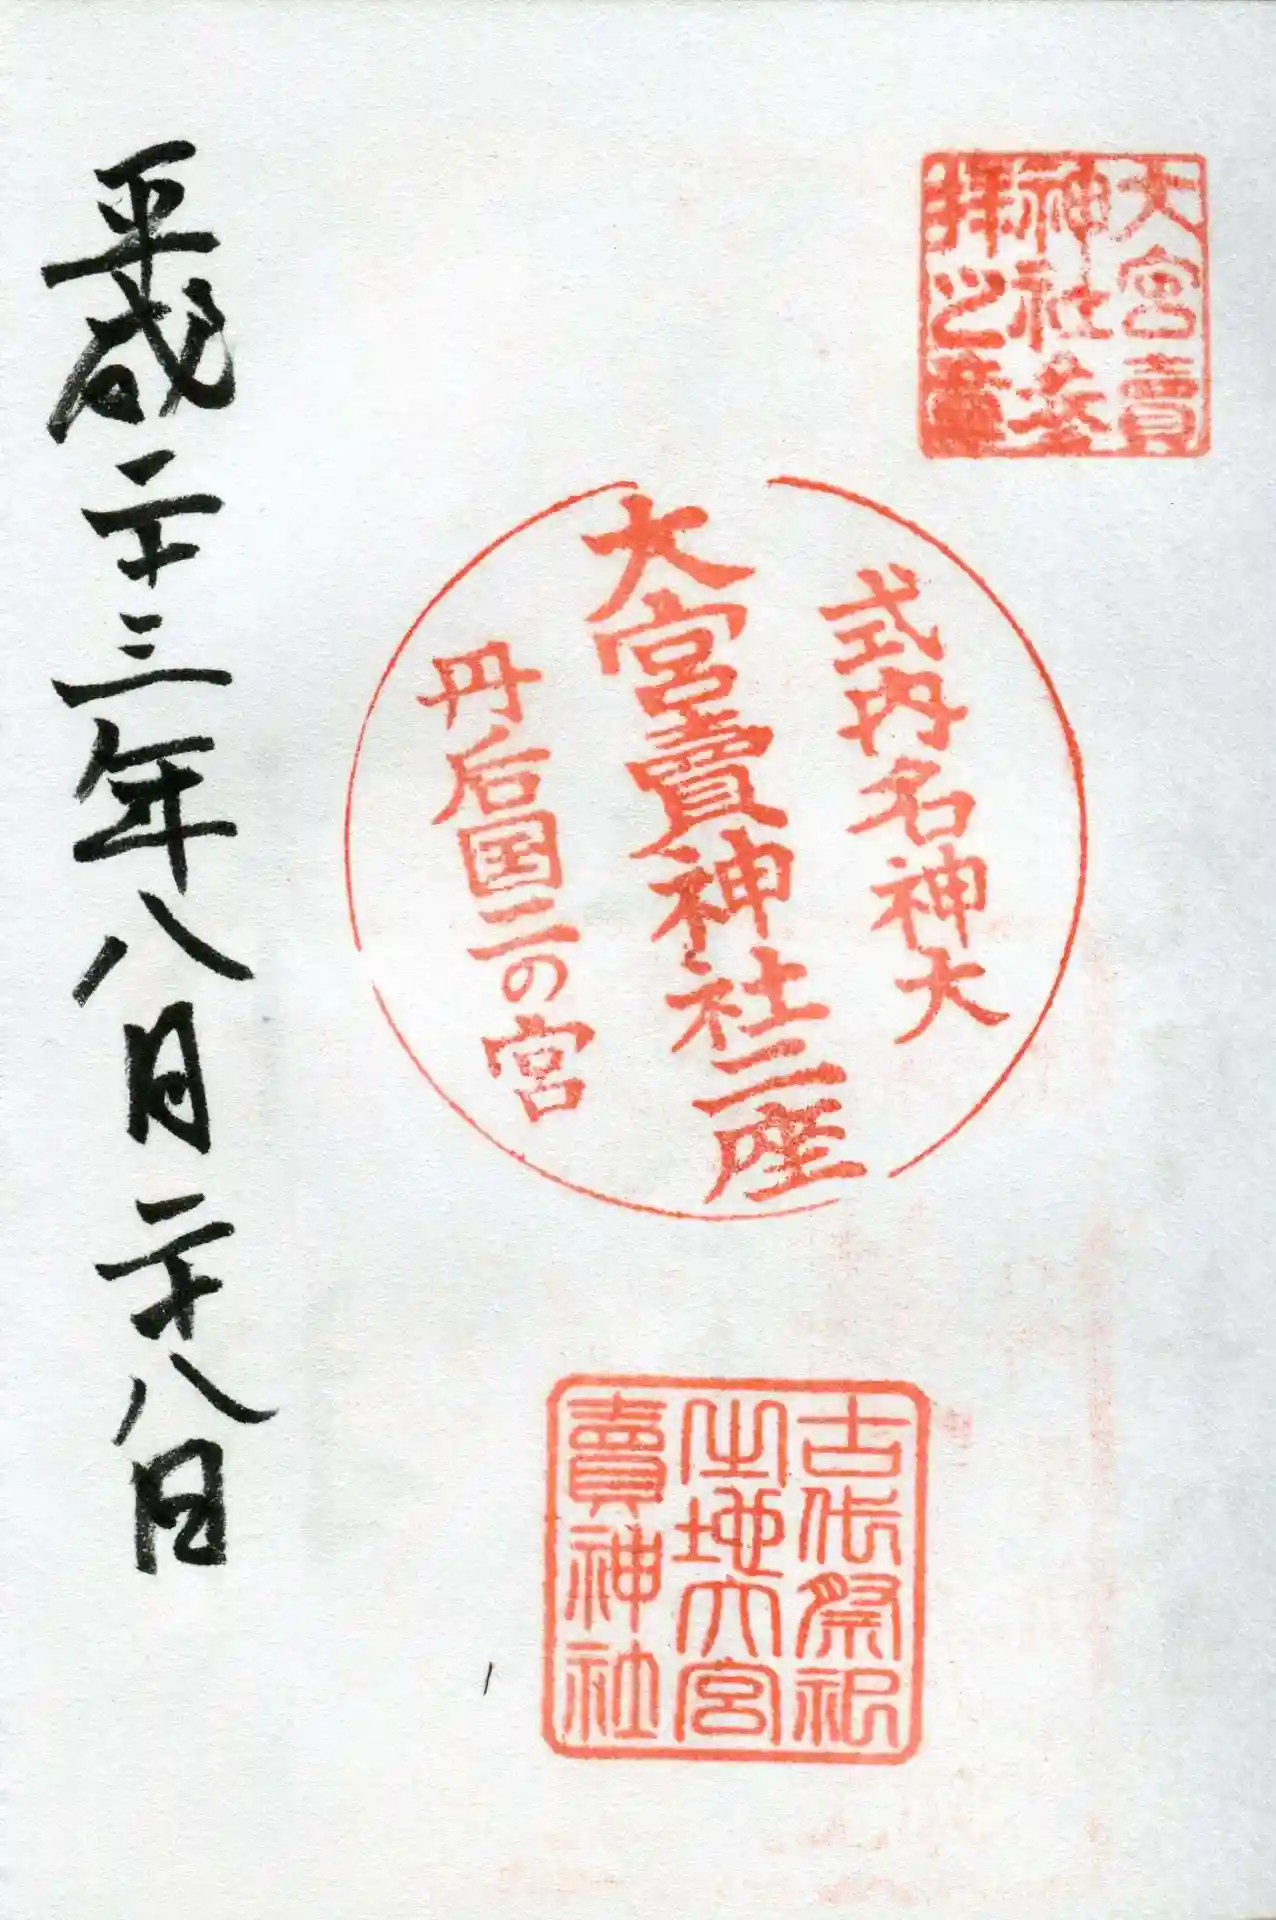 大宮賣
神社参
拝之章
式内名神大
大宮賣神社二座
丹后国二の宮
古代祭祀
之地大宮
賣神社
平成二十三年八月二十八日